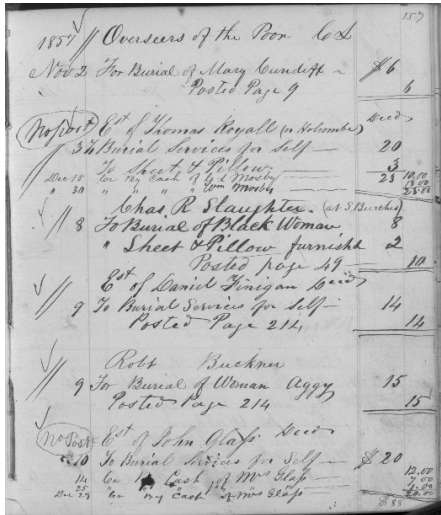 157
1857 // Overseers of the Poor
Nov 2 For Burial of Mary Cundiff $6
Posted Page 9 6
No post Est of Thomas Royall (or Holcombe) Decd
// 3 To Burial Services for Self 20
To Sheet & Pillow 3
Dec 15 Cr By Cash of Mosby 23 10.00
" 30 " " " " Wm Mosby 13.00
23.00
Chas R Slaughter. (at S Burches)
// 8 To Burial of Black Woman 8
" Sheet & Pillow furnisht 2
Posted page 49 10
Est of Daniel Finigan Decd
// 9 To Burial Services for Self 14
Posted Page 214 14
Robt Buckner
// 9 For Burial of Woman Aggy 15
Posted Page 214 15
No Post Est of John Glass Decd
10 To Burial Services for Self $20
14 Cr By Cash of Mrs Glass 12.00
25 7.00
Dec 29 " Cr By Cash of Mrs Glass 1.00
20.00
$88